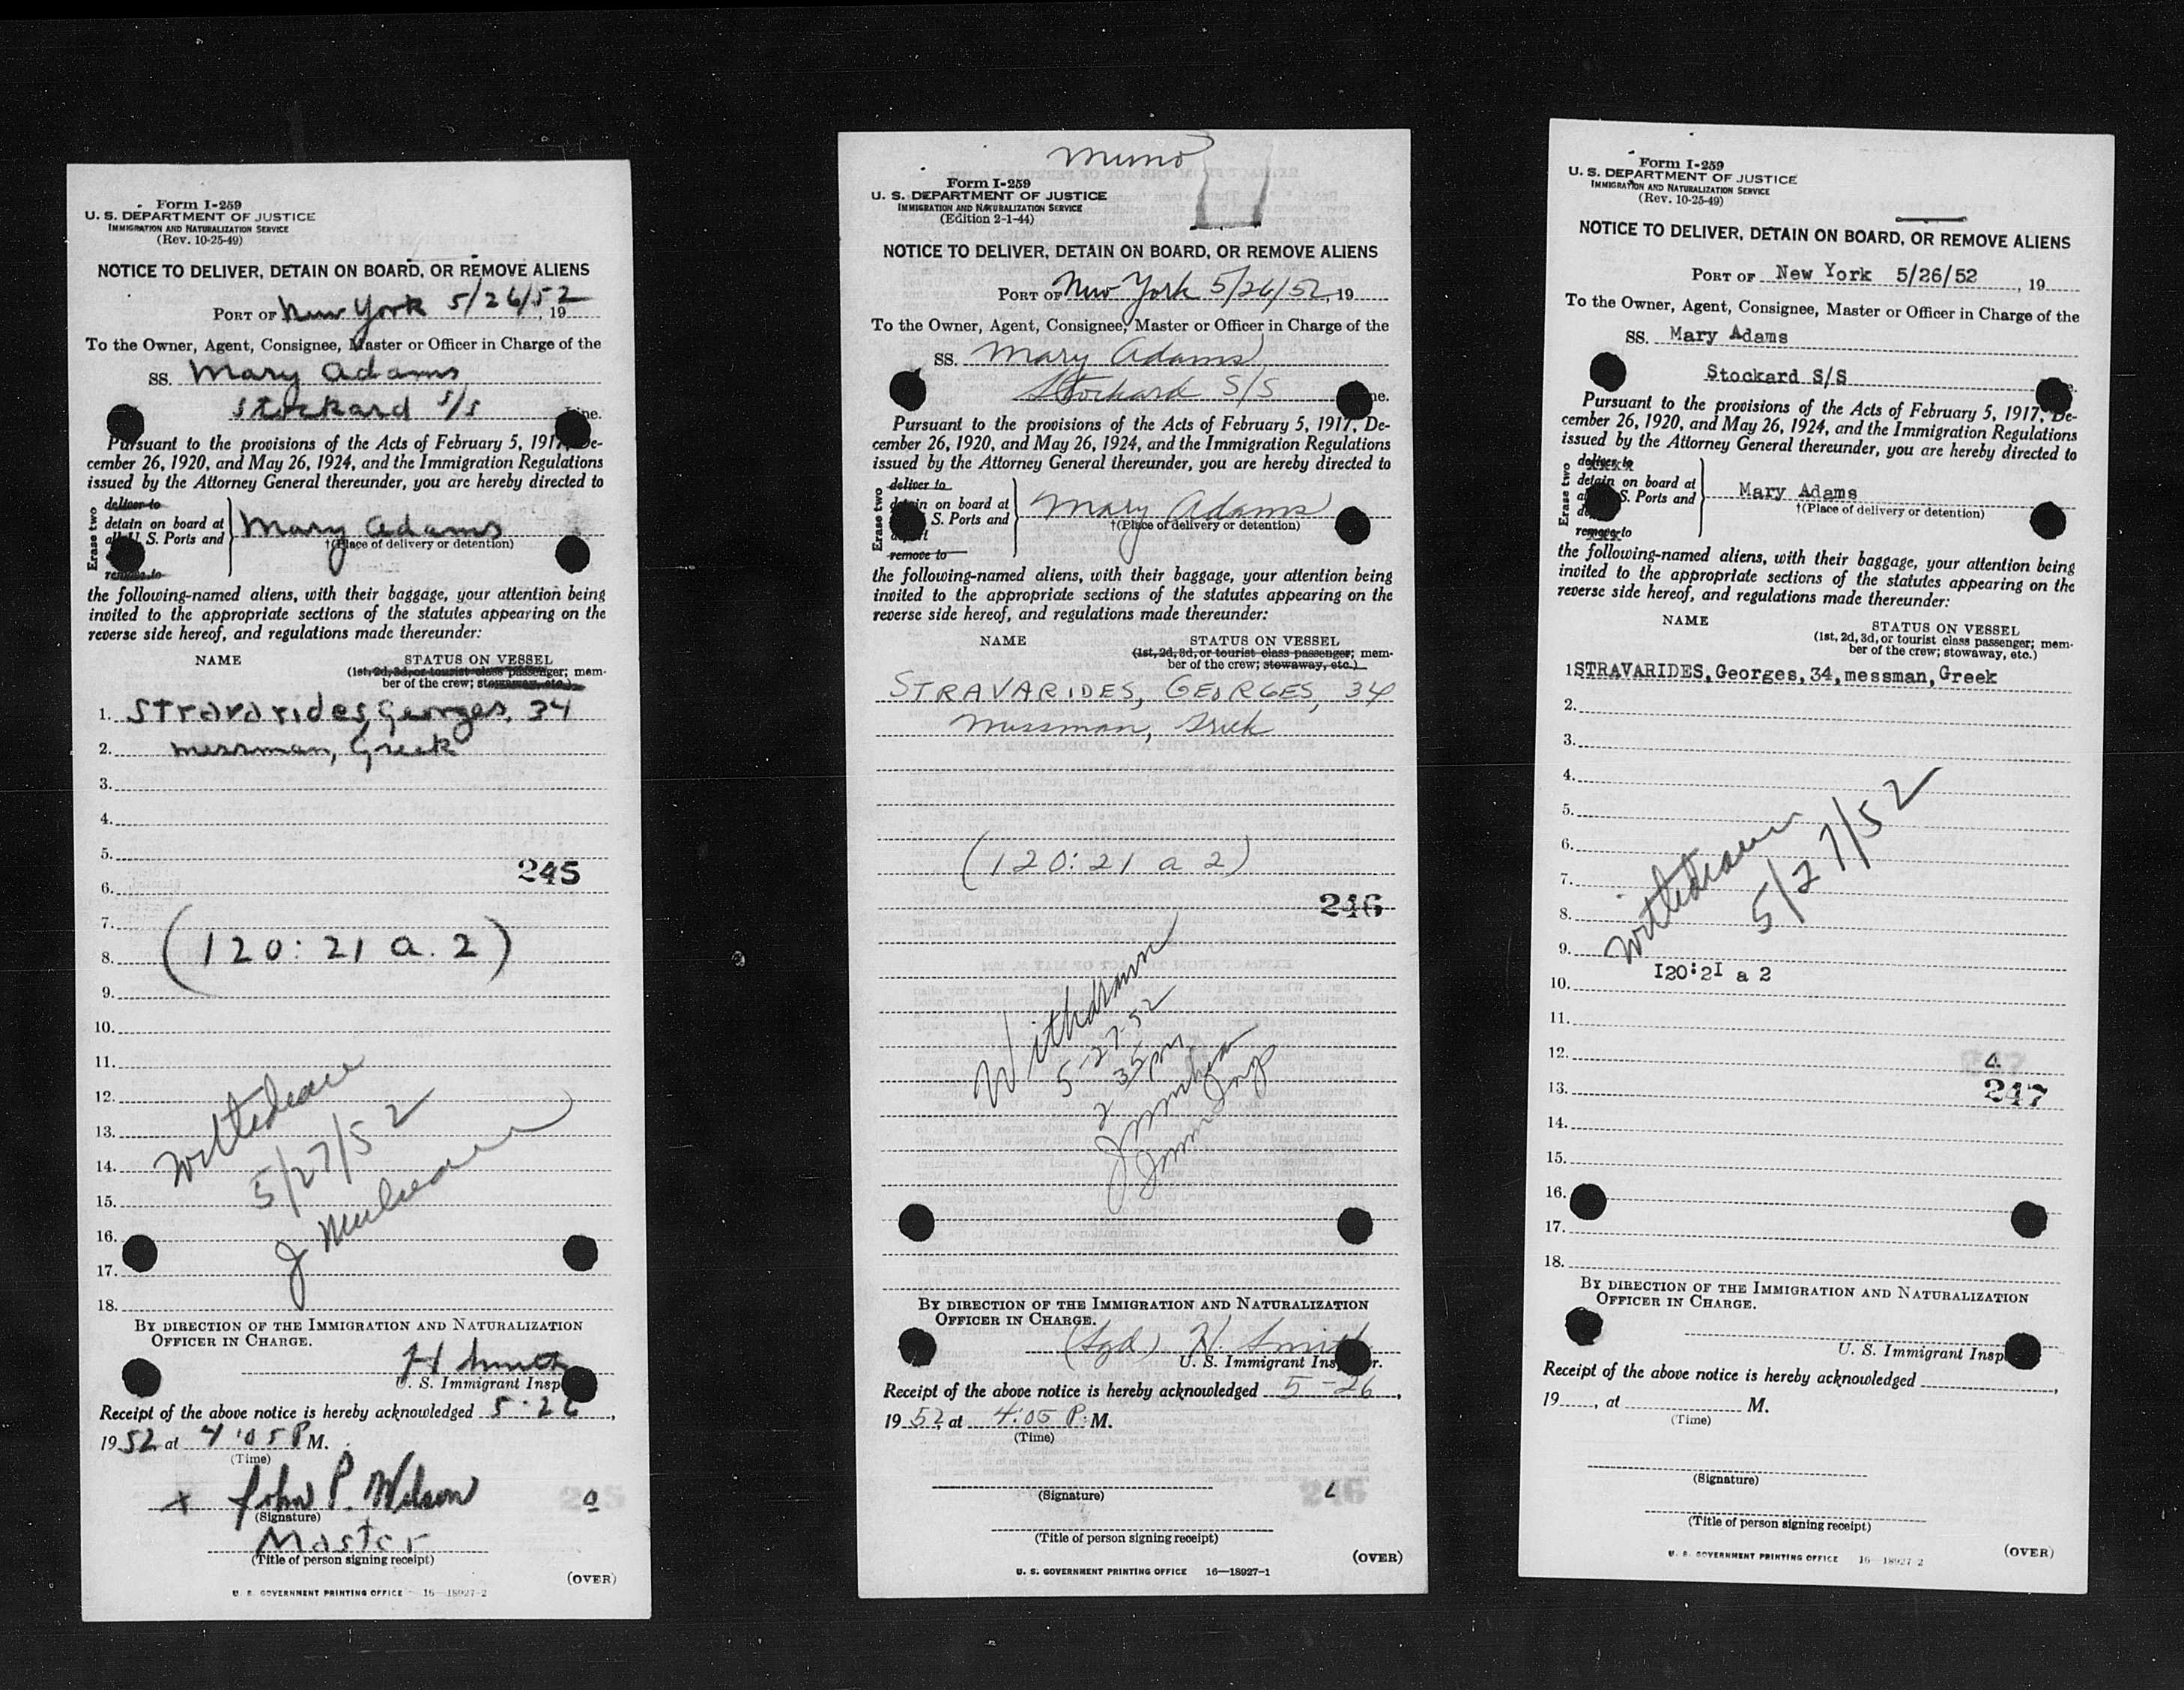 Form I-259
U. S. DEPARTMENT OF JUSTICE
IMMIGRATION AND NATURALIZATION SERVICE
(Rev. 10-25-49)
NOTICE TO DELIVER, DETAIN ON BOARD, OR REMOVE ALIENS
PORT OF New York 5/26/52, 19
To the Owner, Agent, Consignee, Master or Officer in Charge of the
SS. Mary Adams
Stockard S/S Line.
Pursuant to the provisions of the Acts of February 5, 1917, De-
cember 26, 1920, and May 26, 1924, and the Immigration Regulations
issued by the Attorney General thereunder, you are hereby directed to
Erase two
deliver to
detain on board at
all U. S. Ports and
Mary Adams
†(Place of delivery or detention)
remove to
the following-named aliens, with their baggage, your attention being
invited to the appropriate sections of the statutes appearing on the
reverse side hereof, and regulations made thereunder:
NAME STATUS ON VESSEL
(1st, 2d, 3d, or tourist class passenger; mem-
ber of the crew; stowaway, etc.)
1. Stravarides, Georges, 34
2. messman, Greek
3.
4.
5.
245
6.
7.
8. (120: 21 a. 2)
9.
10.
11.
12.
13.
14.
15.
16.
17.
18.
5/27/52
BY DIRECTION OF THE IMMIGRATION AND NATURALIZATION
OFFICER IN CHARGE.
H Smith
U. S. Immigrant Insp
Receipt of the above notice is hereby acknowledged 5-26,
1952 at 4:05 P M.
(Time)
x John P. Wilson
(Signature)
Master
(Title of person signing receipt)
(OVER)
U. S. GOVERNMENT PRINTING OFFICE 16—18927-2
memo
Form I-259
U. S. DEPARTMENT OF JUSTICE
IMMIGRATION AND NATURALIZATION SERVICE
(Edition 2-1-44)
NOTICE TO DELIVER, DETAIN ON BOARD, OR REMOVE ALIENS
PORT OF New York 5/26/52, 19
To the Owner, Agent, Consignee, Master or Officer in Charge of the
SS. Mary Adams
Stockard S/S ne.
Pursuant to the provisions of the Acts of February 5, 1917, De-
cember 26, 1920, and May 26, 1924, and the Immigration Regulations
issued by the Attorney General thereunder, you are hereby directed to
Erase two
deliver to
detain on board at
S. Ports and
Mary Adams
†(Place of delivery or detention)
remove to
the following-named aliens, with their baggage, your attention being
invited to the appropriate sections of the statutes appearing on the
reverse side hereof, and regulations made thereunder:
NAME STATUS ON VESSEL
(1st, 2d, 3d, or tourist class passenger; mem-
ber of the crew; stowaway, etc.)
STRAVARIDES, GEORGES, 34
Messman, Greek
(120: 21 a 2)
246
Withdrawn
5-27-52
2 35 pm
BY DIRECTION OF THE IMMIGRATION AND NATURALIZATION
OFFICER IN CHARGE.
(Sgd) H. Smith
U. S. Immigrant Ins r.
Receipt of the above notice is hereby acknowledged 5-26,
1952, at 4:05 P. M.
(Time)
(Signature)
(Title of person signing receipt)
(OVER)
U. S. GOVERNMENT PRINTING OFFICE 16—18927-1
Form I-259
U. S. DEPARTMENT OF JUSTICE
IMMIGRATION AND NATURALIZATION SERVICE
(Rev. 10-25-49)
NOTICE TO DELIVER, DETAIN ON BOARD, OR REMOVE ALIENS
PORT OF New York 5/26/52, 19
To the Owner, Agent, Consignee, Master or Officer in Charge of the
SS. Mary Adams
Stockard S/S e.
Pursuant to the provisions of the Acts of February 5, 1917, De-
cember 26, 1920, and May 26, 1924, and the Immigration Regulations
issued by the Attorney General thereunder, you are hereby directed to
Erase two
deliver to
detain on board at
S. Ports and
Mary Adams
†(Place of delivery or detention)
remove to
the following-named aliens, with their baggage, your attention being
invited to the appropriate sections of the statutes appearing on the
reverse side hereof, and regulations made thereunder:
NAME STATUS ON VESSEL
(1st, 2d, 3d, or tourist class passenger; mem-
ber of the crew; stowaway, etc.)
1STRAVARIDES, Georges, 34, messman, Greek
2.
3.
4.
5.
6.
7.
8.
9.
5/27/52
I20:2I a 2
10.
11.
12.
13.
247
14.
15.
16.
17.
18.
BY DIRECTION OF THE IMMIGRATION AND NATURALIZATION
OFFICER IN CHARGE.
U. S. Immigrant Insp
Receipt of the above notice is hereby acknowledged ,
19 , at M.
(Time)
(Signature)
(Title of person signing receipt)
(OVER)
U. S. GOVERNMENT PRINTING OFFICE 16—18927-2